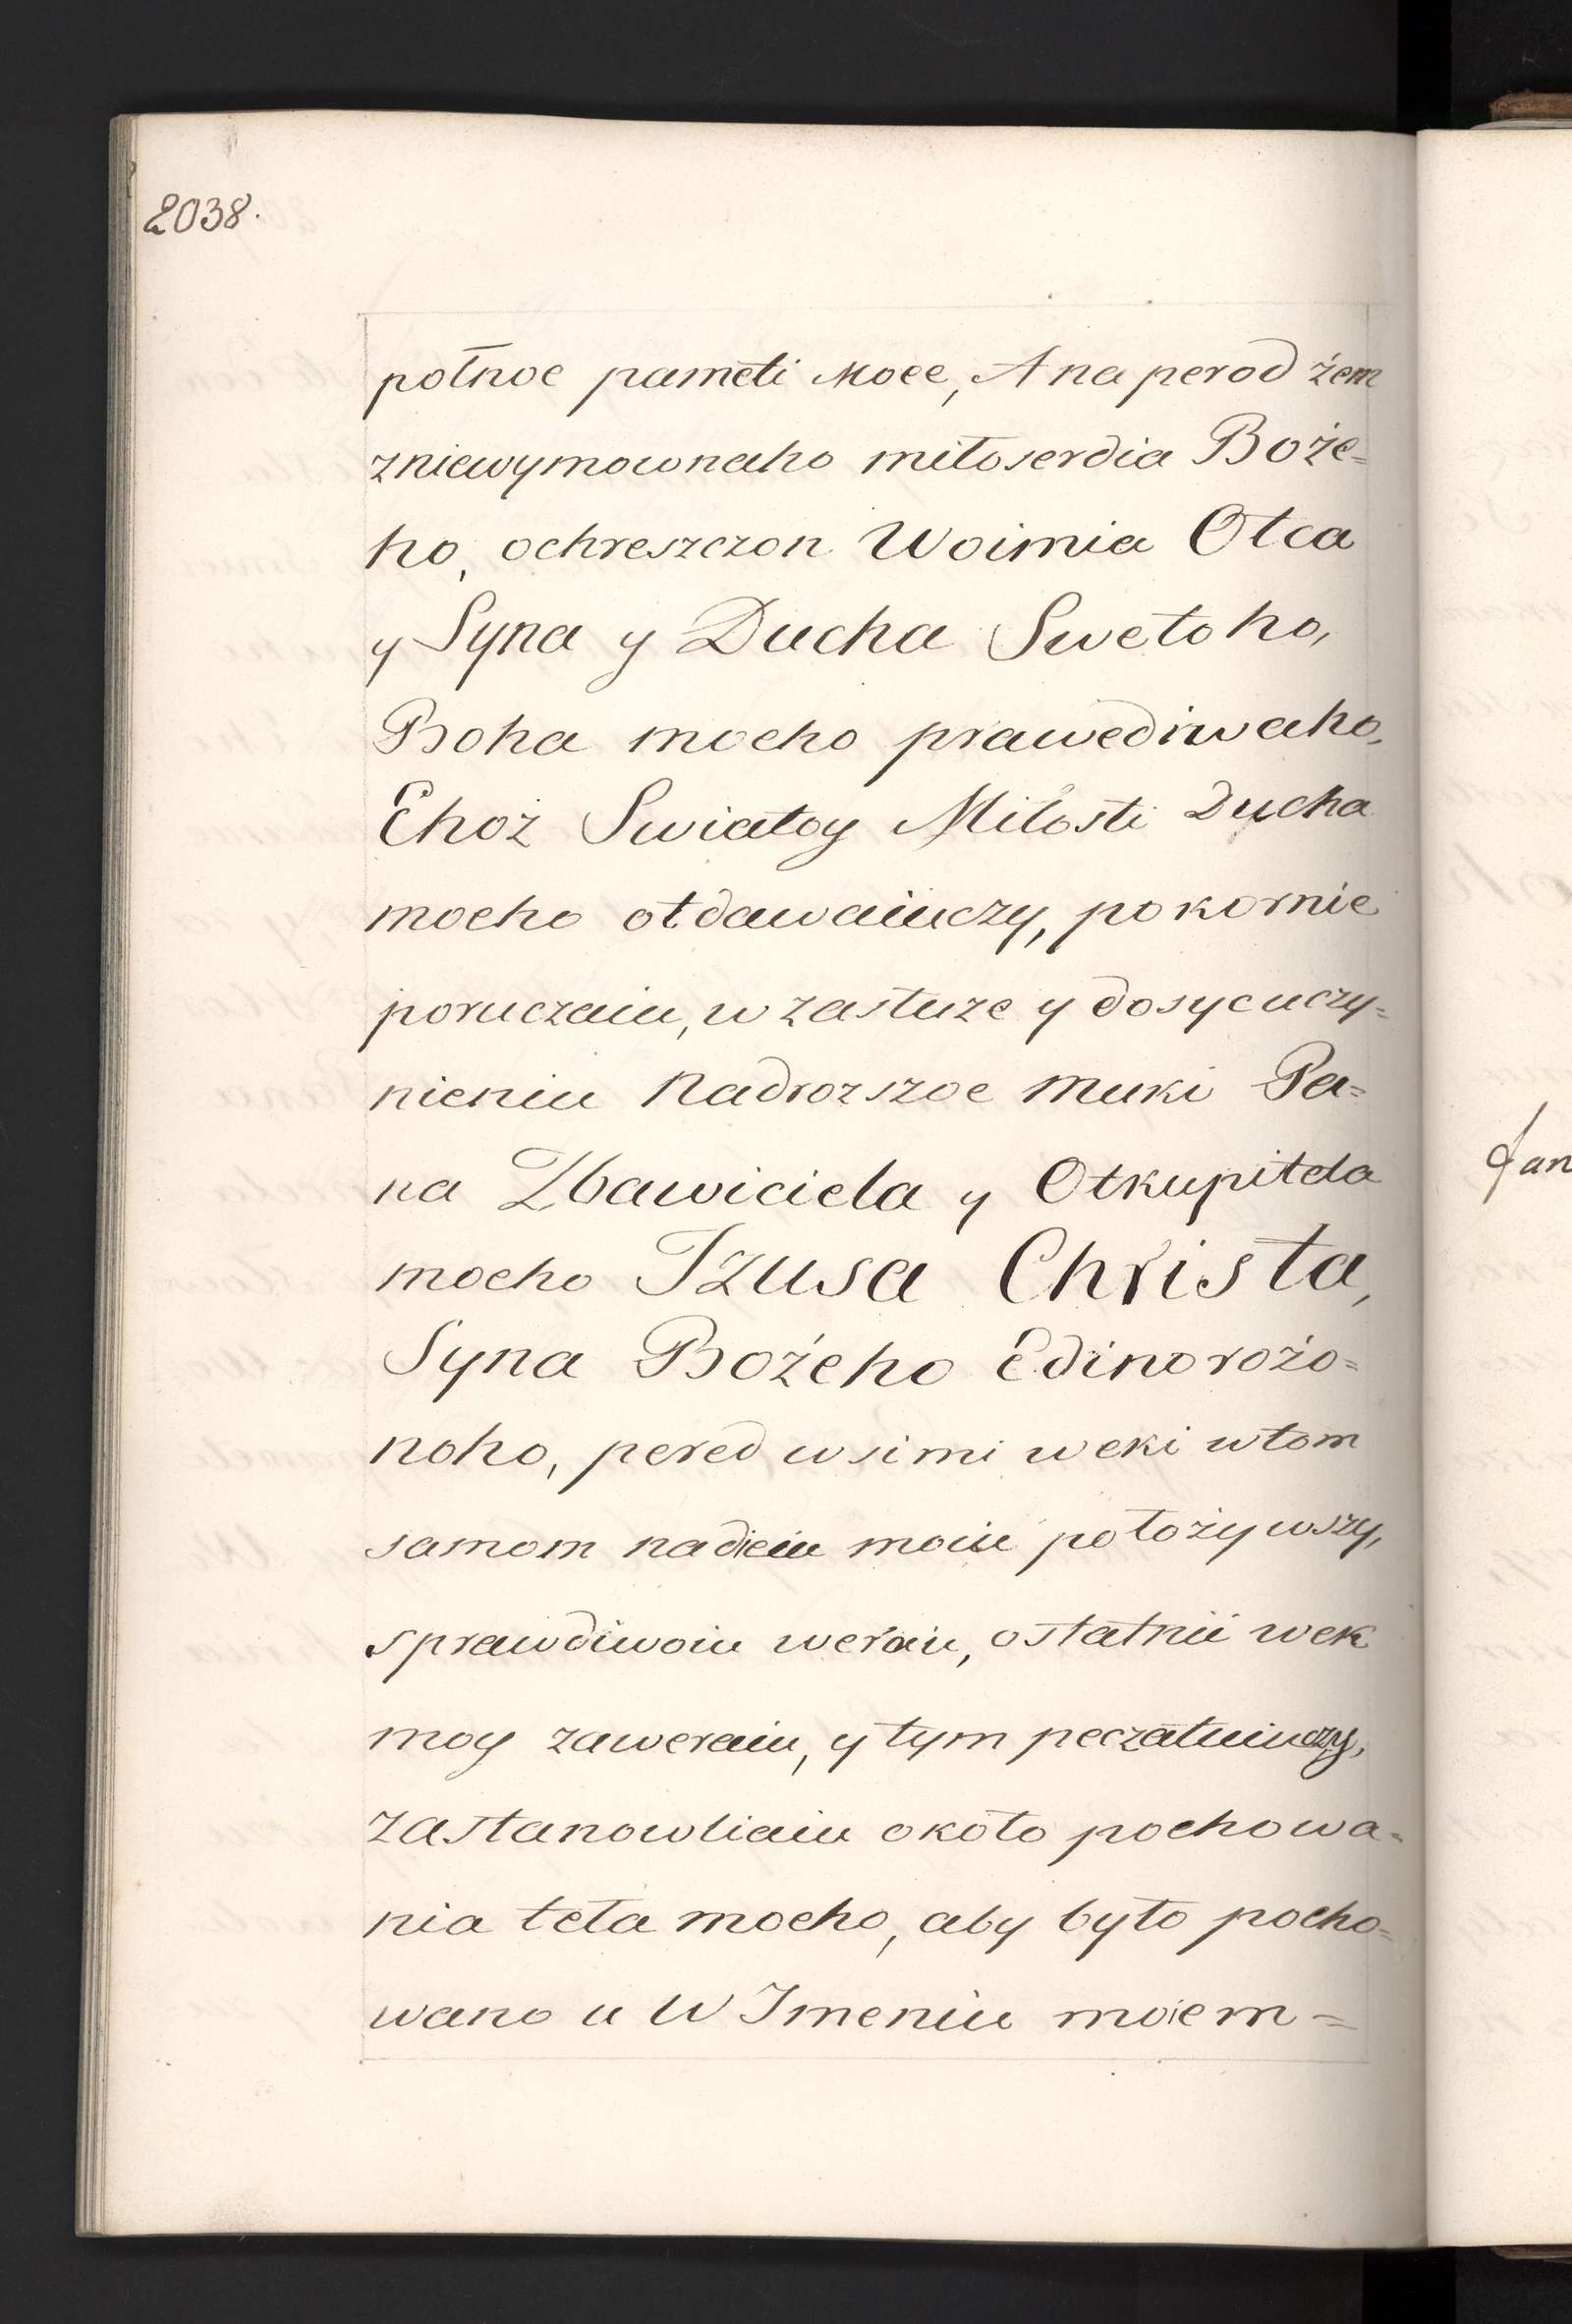 2038.
połnoe pameti moee, A na perod żem
zniewymownaho miłoserdia Boże=
ho, ochreszczon Woimia Otca
y Syna y Ducha Swetoho,
Boha moeho prawediwaho,
Ehoż Swiatoy Miłosti Ducha
moeho otdawaiuczy, pokornie
poruczaiu, w zasłuze y dosycuczy=
nieniu Nadrozszoe Muki Pa=
na Zbawiciela y Otkupitela
moeho Izusa Christa,
Syna Bożeho Edinorożo=
noho, pered wsimi weki wtom
samom nadieiu moiu położywszy,
sprawdiwoiu weraiu, ostatnii wek
moy zaweraiu, y tym peczatuiuczy,
zastanowliaiu około pochowa=
nia teła moeho, aby było pocho=
wano u W Imeniu moiem =
Jan